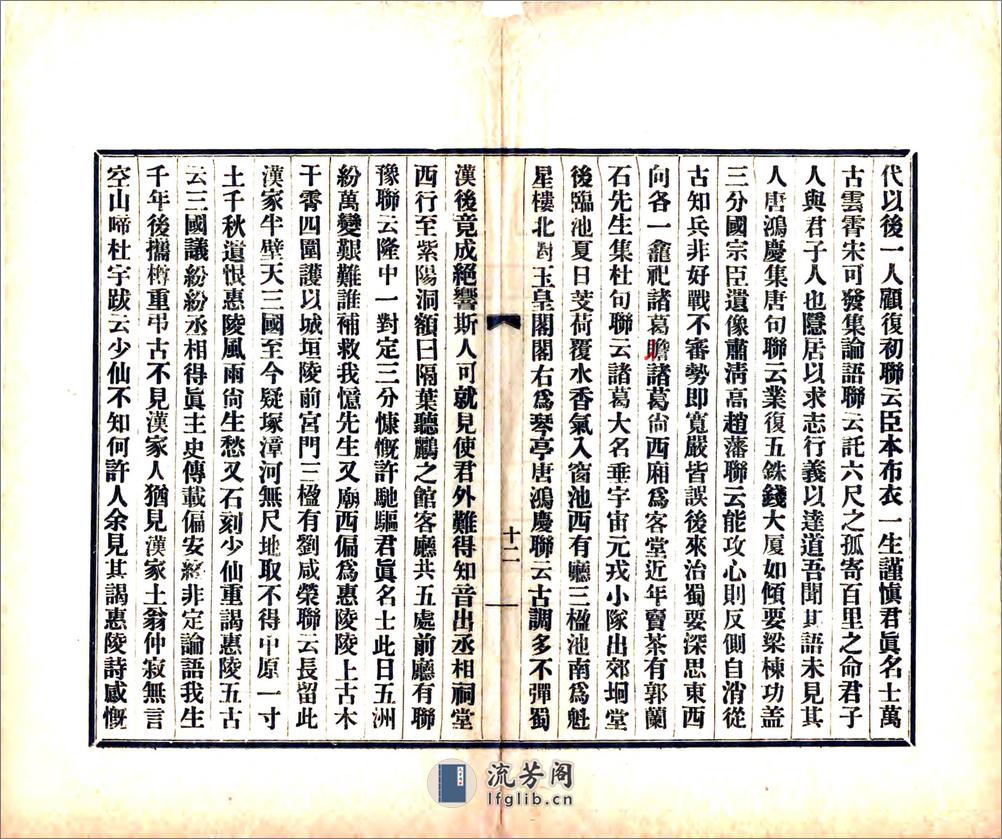 代以後一人顧復初聯云臣本布衣一生謹愼君眞名士萬
古雲霄宋可發集論語聯云託六尺之孤寄百里之命君子
人與君子人也隱居以求志行義以達道吾聞其語未見其
人唐鴻慶集唐句聯云業復五銖錢大厦如傾要梁棟功蓋
三分國宗臣遺像肅淸高趙藩聯云能攻心則反側自消從
古知兵非好戰不審勢即寬嚴皆誤後來治蜀要深思東西
向各一龕祀諸葛瞻諸葛尙西廂爲客堂近年賣茶有郭蘭
石先生集杜句聯云諸葛大名垂宇宙元戎小隊出郊坰堂
後臨池夏日芰荷覆水香氣入窗池西有廳三楹池南爲魁
星樓北對玉皇閣閣右爲琴亭唐鴻慶聯云古調多不彈蜀
十二
漢後竟成絕響斯人可就見使君外難得知音出丞相祠堂
西行至紫陽洞額曰隔葉聽鸝之館客廳共五處前廳有聯
豫聯云隆中一對定三分慷慨許馳驅君眞名士此日五洲
紛萬變艱難誰補救我憶先生又廟西偏爲惠陵陵上古木
干霄四圍護以城垣陵前宮門三楹有劉咸榮聯云長留此
漢家半壁天三國至今疑塚漳河無尺地取不得中原一寸
土千秋遺恨惠陵風雨尙生愁又石刻少仙重謁惠陵五古
云三國議紛紛丞相得眞主史傳載偏安終非定論語我生
千年後攜樽重弔古不見漢家人猶見漢家土翁仲寂無言
空山啼杜宇跋云少仙不知何許人余見其謁惠陵詩感慨
流芳阁
lfglib.cn